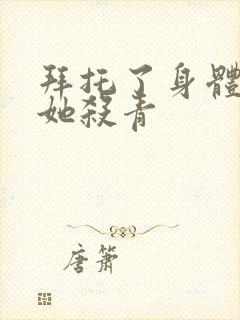 拜托了身體
她殺青
唐簫